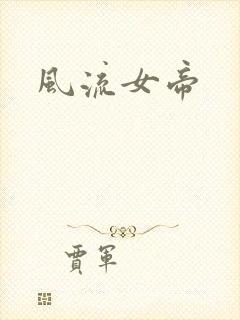 風流女帝
賈軍